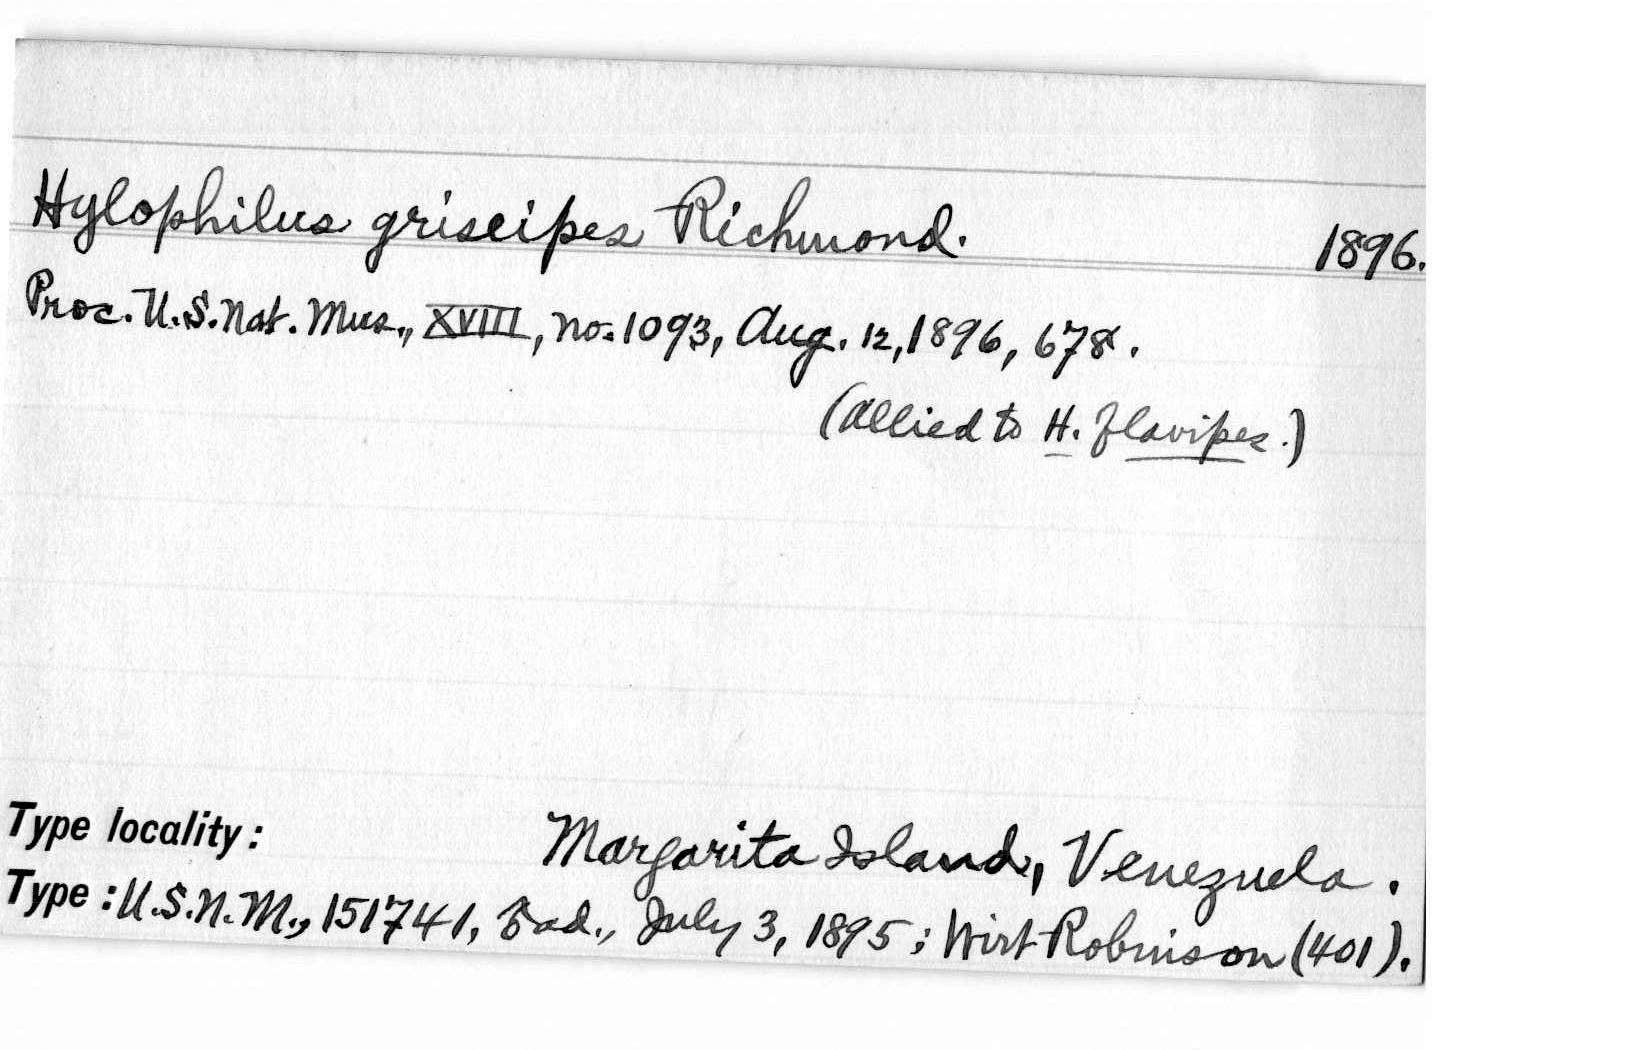 Hylophilus griseipes Richmond. 1896.
Proc. U.S. Nat. Mus., XVIII, no. 1093, Aug. 12, 1896, 678.
(Allied to H. flavipes.)
Type locality: Margarita Island, Venezuela.
Type: U.S.N.M., 151741, ad., July 3, 1895; Wirt Robinson (401).